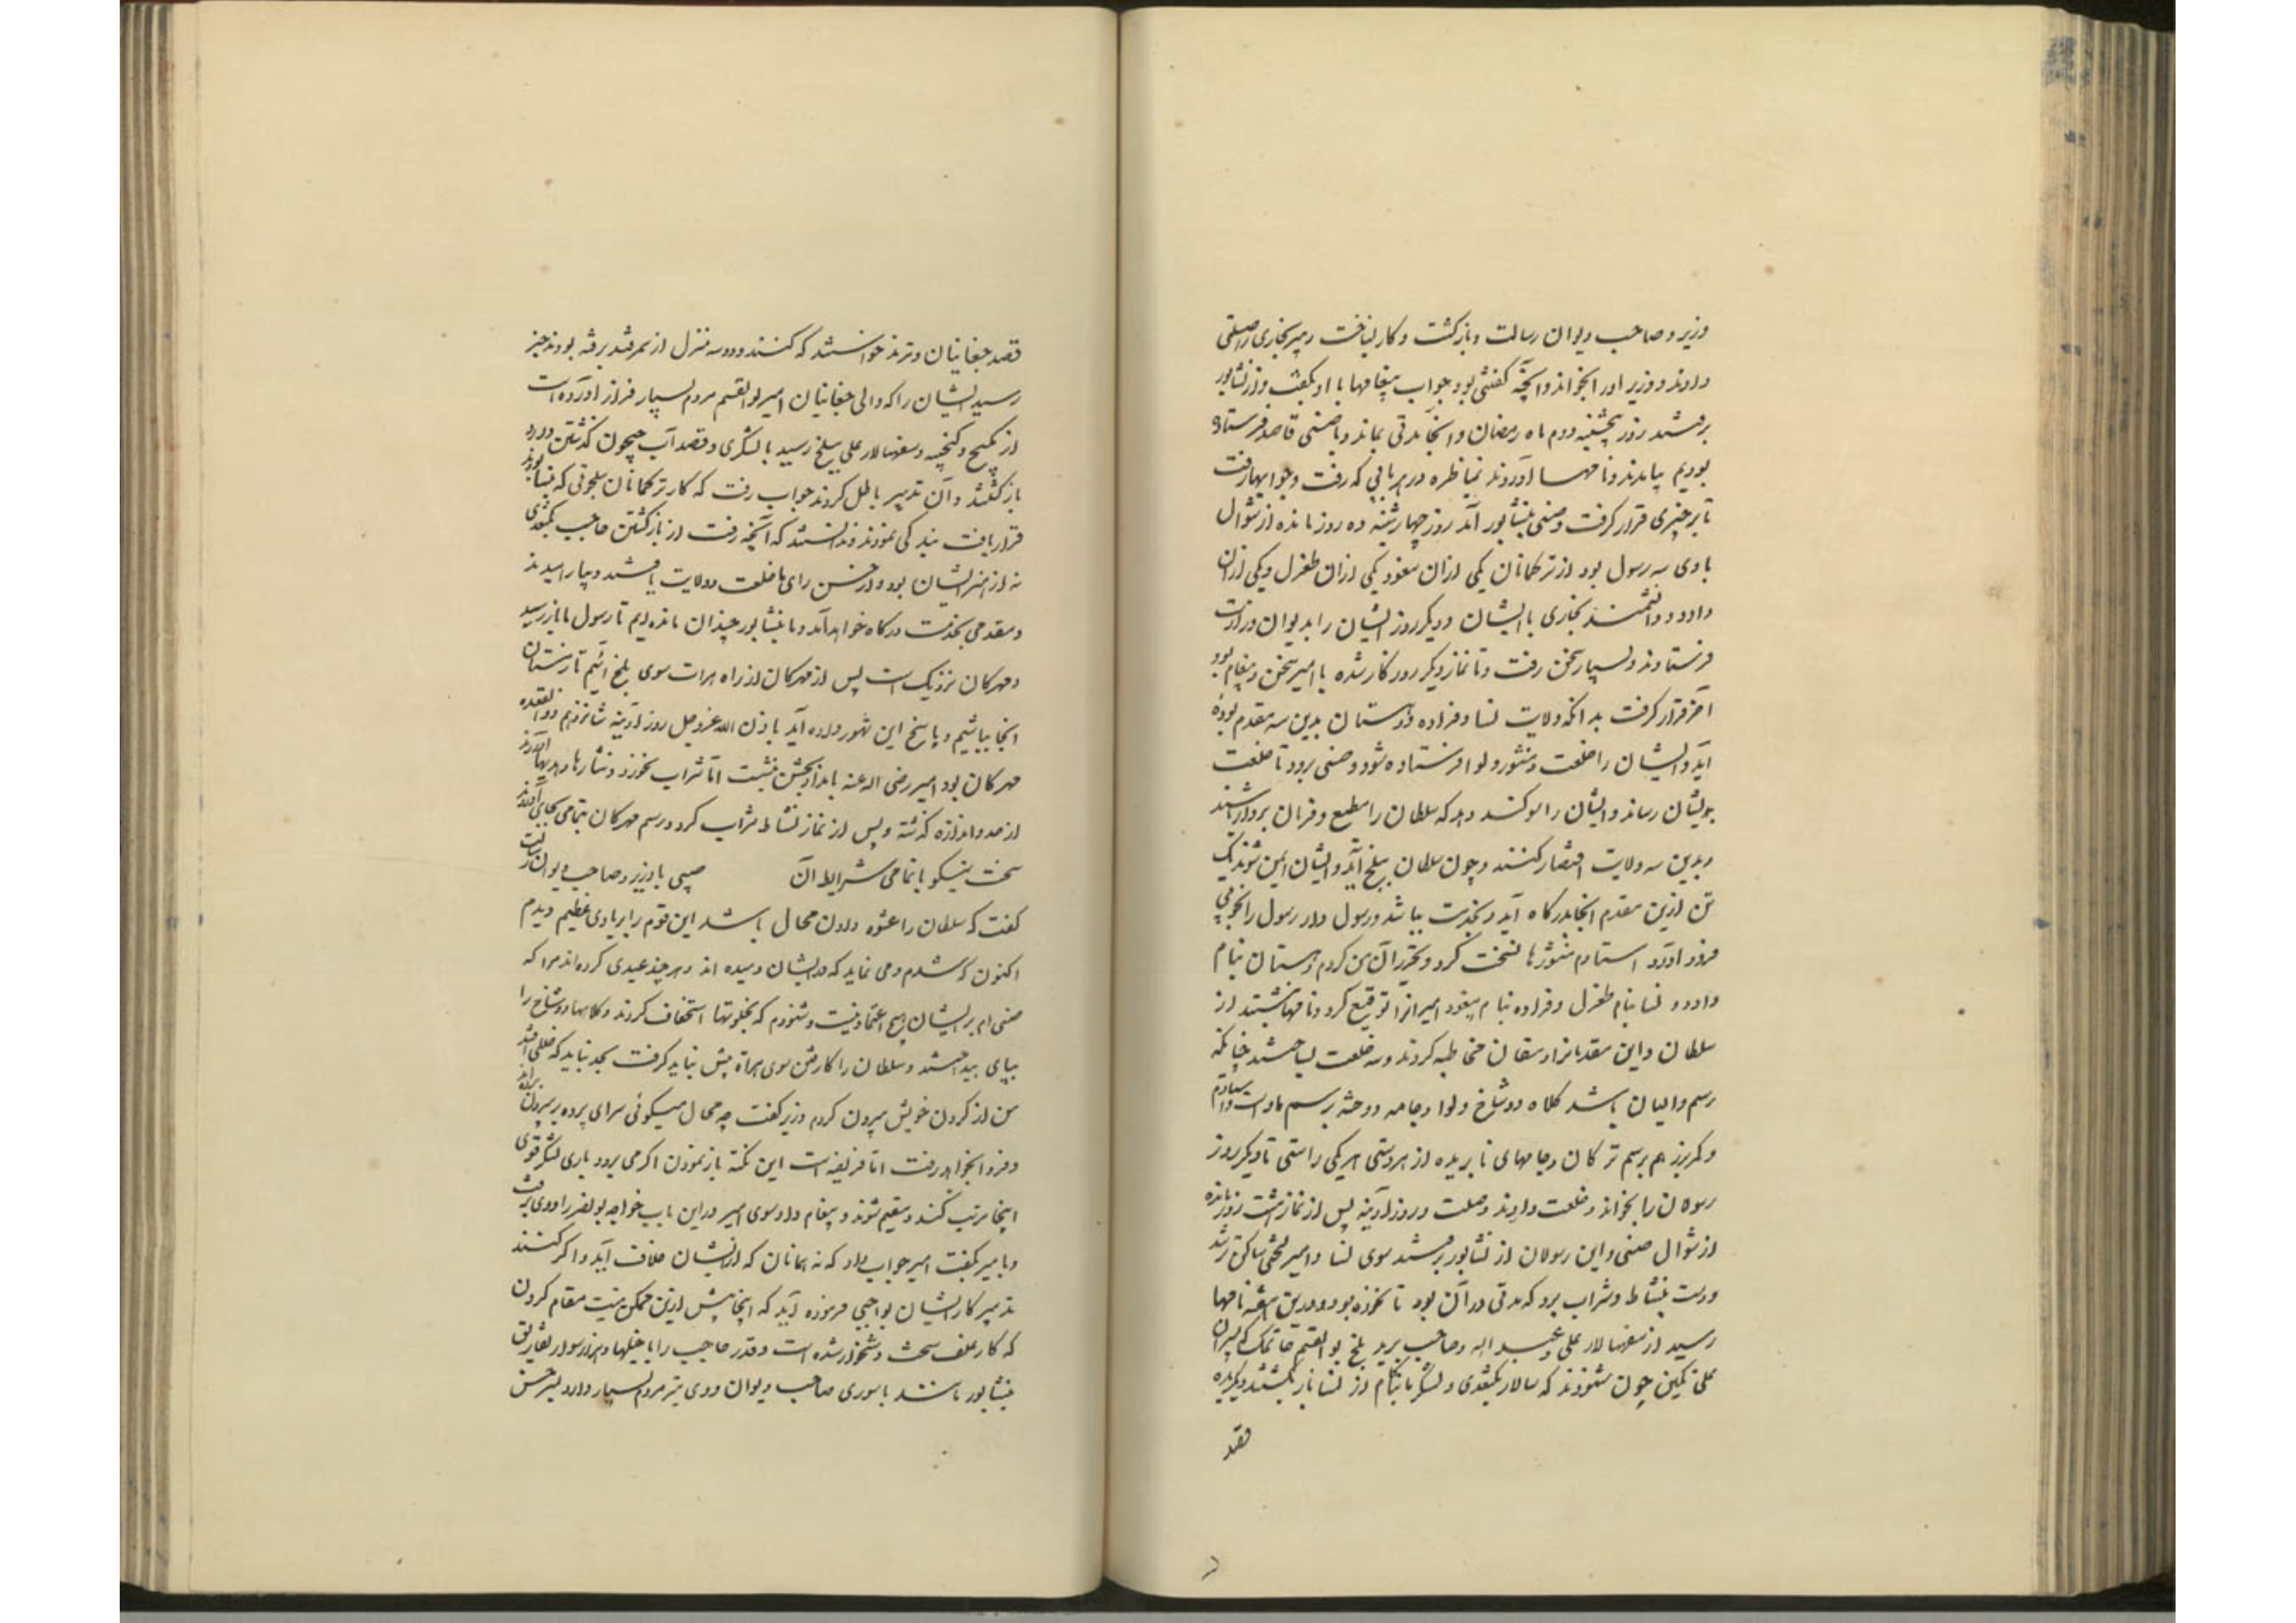 وزیر و صاحب دیوان رسالت و بازگشت و کار بساخت و پیر بخاری را صلتی
دادند و وزیر او را بخواند و آنچه گفتنی بود جواب پیغامها با او بگفت و از نشابور
برفتند روز پنجشنبه دوم ماه رمضان و آنجا مدتی بماند و با صینی قاصد فرستاده
بودیم بیامدند و نامها آوردند بمناظره در هر بابی که رفت و جوابها رفت
تا بر چیزی قرار گرفت و صینی بنشابور آمد روز چهارشنبه ده روز مانده از شوال
با وی سه رسول بود از ترکمانان یکی ازان یبغو و یکی ازان طغرل و یکی ازان
داود و دانشمند بخاری با ایشان و دیگر روز ایشان را بدیوان وزارت
فرستادند و بسیار سخن رفت و تا نماز دیگر روزگار شده با امیر سخن و پیغام بود
آخر قرار گرفت بدانکه ولایت نسا و فراوه و دهستان بدین سه مقدم بوده
آید و ایشان را خلعت و منشور و لوا فرستاده شود و صینی برود تا خلعت
بدیشان رساند و ایشان را سوگند دهد که سلطان را مطیع و فرمان بردار باشند
و بدین سه ولایت اقتصار کنند و چون سلطان ببلخ آید و ایشان ایمن شوند یک
تن ازین مقدم آنجا بدرگاه آید و بخدمت بباشد و رسول دار رسول را بخوبی
فرود آورد استادم منشورها نسخت کرد و تحریر آن من کردم دهستان بنام
داود و نسا بنام طغرل و فراوه بنام یبغو و امیر آنرا توقیع کرد و نامها نبشتند از
سلطان و این مقدمانرا دهقان مخاطبه کردند و سه خلعت بساختند چنانکه
رسم والیان باشد کلاه دوشاخ و لوا و جامه دوخته برسم ما و اسب و استام
و کمر بزر هم برسم ترکان و جامهای نابریده از هر دستی هر یکی را سی تا و دیگر روز
رسولان را بخواندند و خلعت دادند و صلت و روز آدینه پس از نماز هشت روز مانده
از شوال صینی و این رسولان از نشابور برفتند سوی نسا و امیر لختی ساکن تر شد
و دست بنشاط و شراب برد که مدتی دراز بود تا نخورده بود و درین هفته نامها
رسید از سپهسالار علی عبدالله و صاحب برید بلخ بوالقسم حاتمک که پسران
علی تگین چون شنودند که سالار بکتغدی و لشکر ما بناکام از نسا بازگشتند و دیگر باره
قصد
قصد چغانیان و ترمذ خواستند که کنند و دو سه منزل از سمرقند برفته بودند خبر
رسید ایشان را که والی چغانیان امیر ابوالقسم مردم بسیار فراز آورده است
از کمیج و کنجینه و سپهسالار علی ببلخ رسید با لشکری و قصد آب جیحون گذشتن دارد
بازگشتند و آن تدبیر باطل کردند جواب رفت که کار ترکمانان سلجوقی که بنسا بودند
قرار یافت بندگی نمودند و بدانستند که آنچه رفت از بازگشتن حاجب بکتغدی
نه از هنر ایشان بود و از حسن رای ما خلعت و ولایت یافتند و بیارامیدند
و مقدمی بخدمت درگاه خواهد آمد و ما بنشابور چندان مانده ایم تا رسول ما باز رسید
و مهرگان نزدیک است پس از مهرگان از راه هرات سوی بلخ آئیم تا زمستان
آنجا بباشیم و پاسخ این شهور داده آید باذن الله عز و جل روز آدینه شانزدهم ذوالقعده
مهرگان بود امیر رضی الله عنه بامداد بجشن بنشست اما شراب نخورد و نثارها و هدیها آوردند
از حد و اندازه گذشته و پس از نماز نشاط شراب کرد و رسم مهرگان بتمامی بجای آوردند
سخت نیکو با تمامی شرایط آن صینی با وزیر و صاحب دیوان رسالت
گفت که سلطان را عشوه دادن محال باشد این قوم را بر بادی عظیم دیدم
اکنون که شدم و می نماید که در ایشان دمیده اند و هر چند عهدی کرده اند مرا که
صینی ام بر ایشان هیچ اعتماد نیست و شنودم که بخلوتها استخفاف کردند و کلاهها دوشاخ را
بپای بینداختند و سلطان را کار رفتن سوی هراة پیش نباید گرفت بجد نباید که خللی افتد
من از گردن خویش بیرون کردم وزیر گفت چه محال میگوئی سرای پرده بیرون برده اند
و فردا بخواهد رفت اما فریضه است این نکته باز نمودن اگر می برود باری لشکر قوی
اینجا مرتب کنند و مقیم شوند و پیغام داد سوی امیر درین باب خواجه بونصر را و وی برفت
و با میر بگفت امیر جواب داد که نه همانان که از ایشان خلاف آید و اگر کنند
تدبیر کار ایشان بواجبی فرموده آید که اینجا بیش ازین ممکن نیست مقام کردن
که کار علف سخت دشخوار شده است و قدر حاجب را با خیلها و هزار سوار بتفاریق
بنشابور باشند با سوری صاحب دیوان و وی نیز مردم بسیار دارد پسر حسن